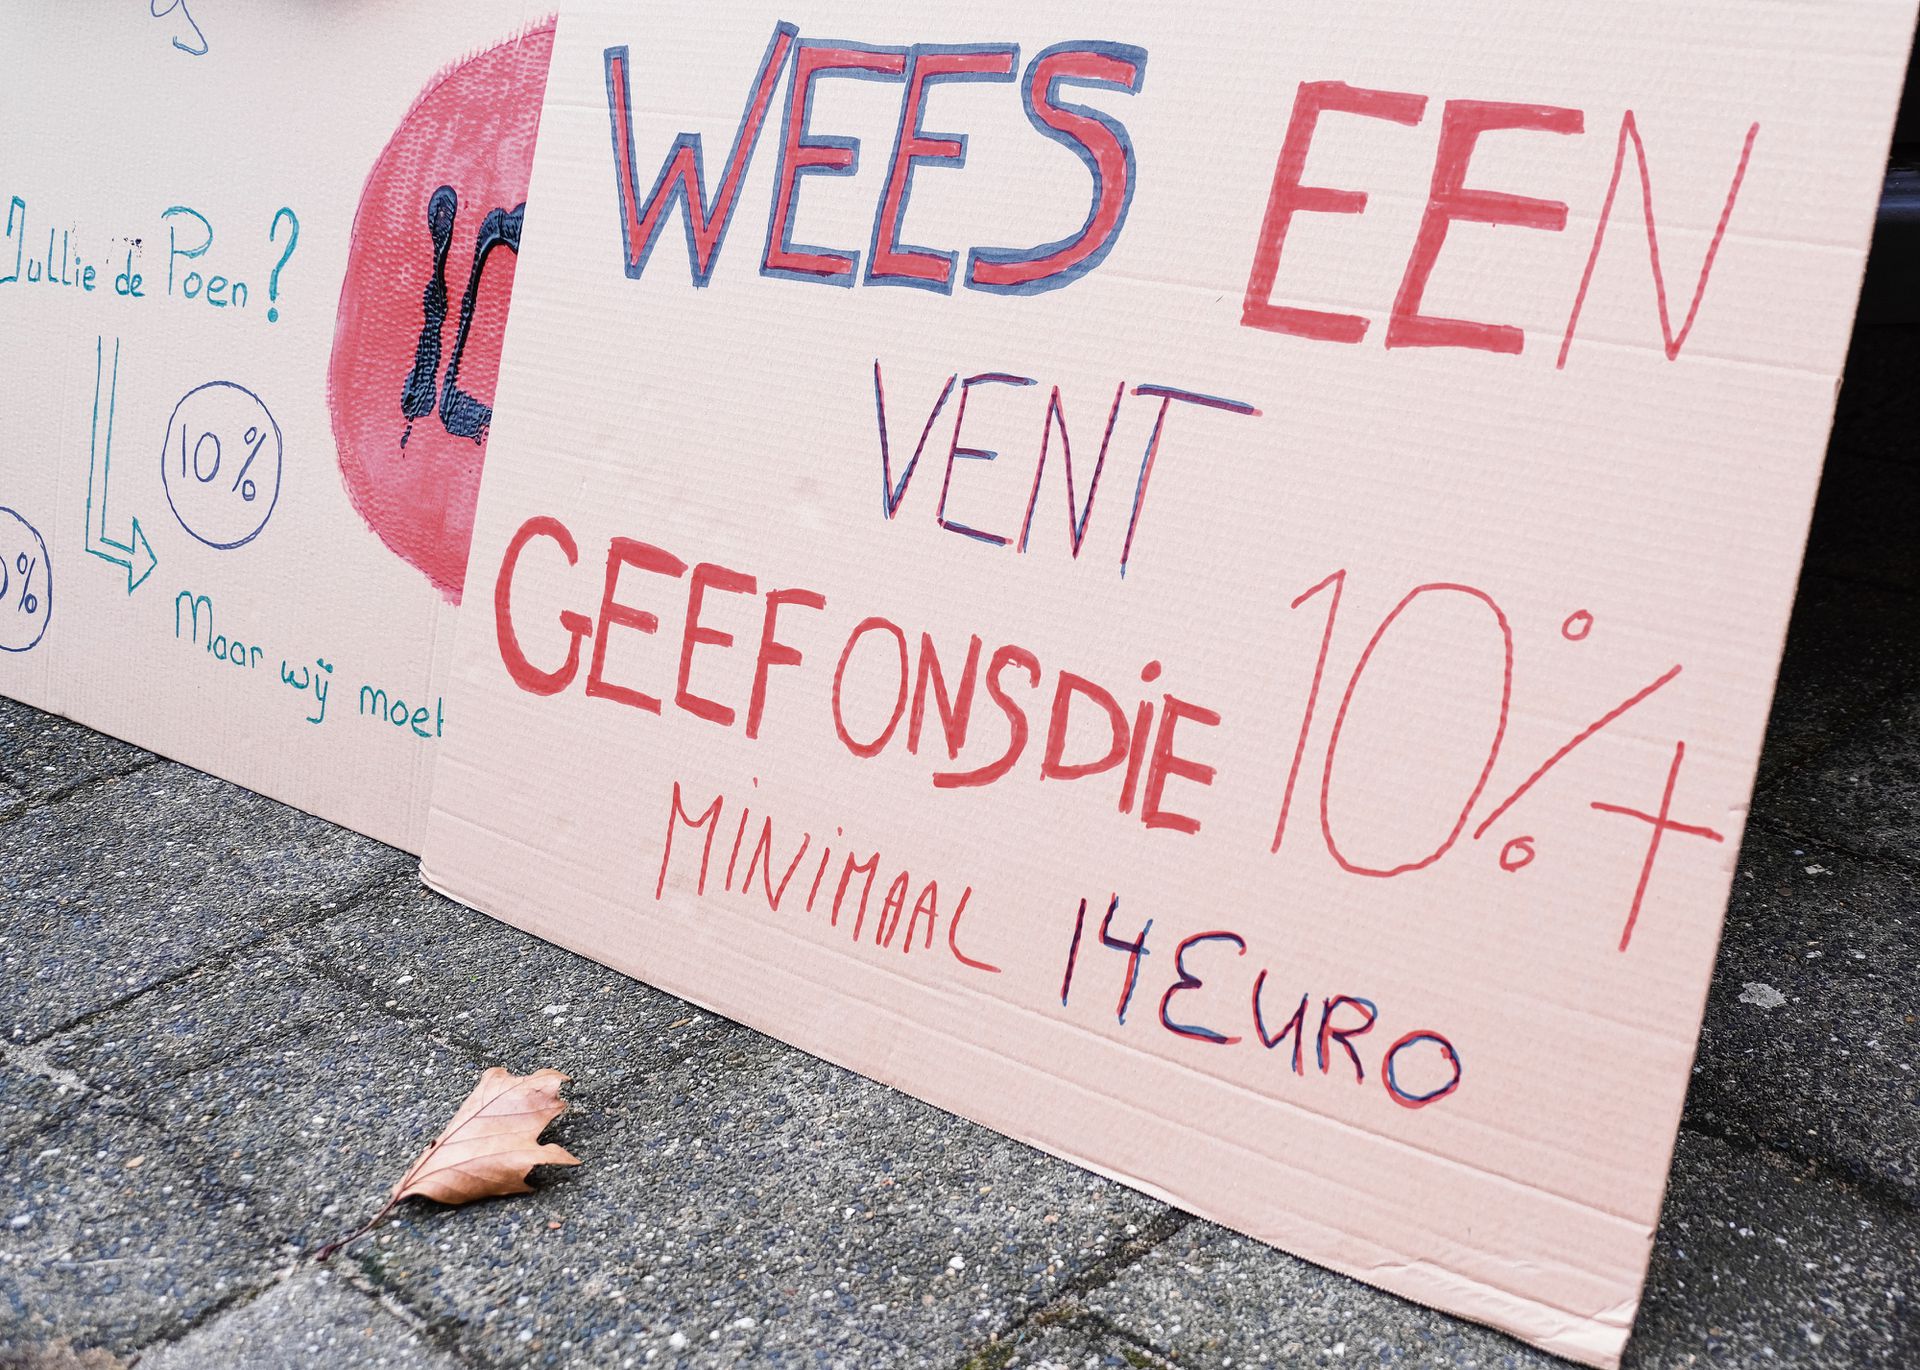 Jullie de Poen?
10%
Maar wij moet
WEES EEN
VENT
GEEF ONS DIE 10%+
MINIMAAL 14 EURO